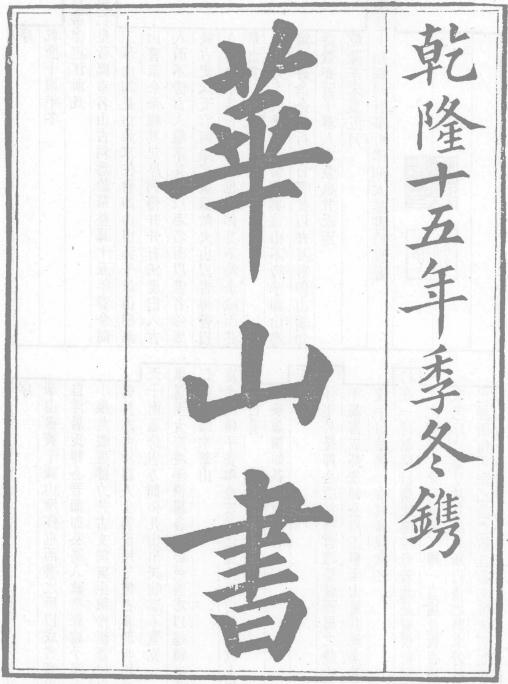 乾隆十五年季冬鐫
華山書